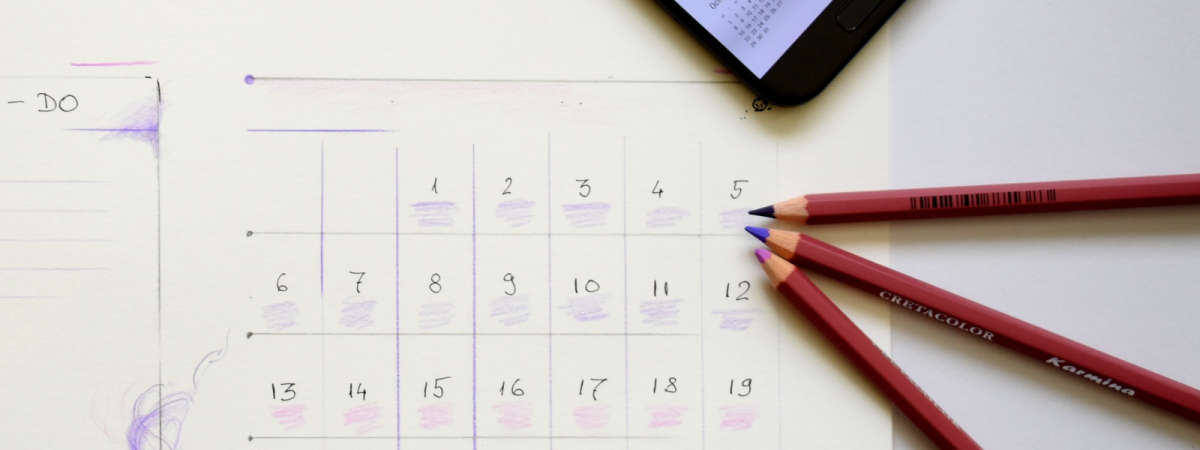 - DO
1 2 3 4 5
6 7 8 9 10 11 12
13 14 15 16 17 18 19
CRETACOLOR Karmina